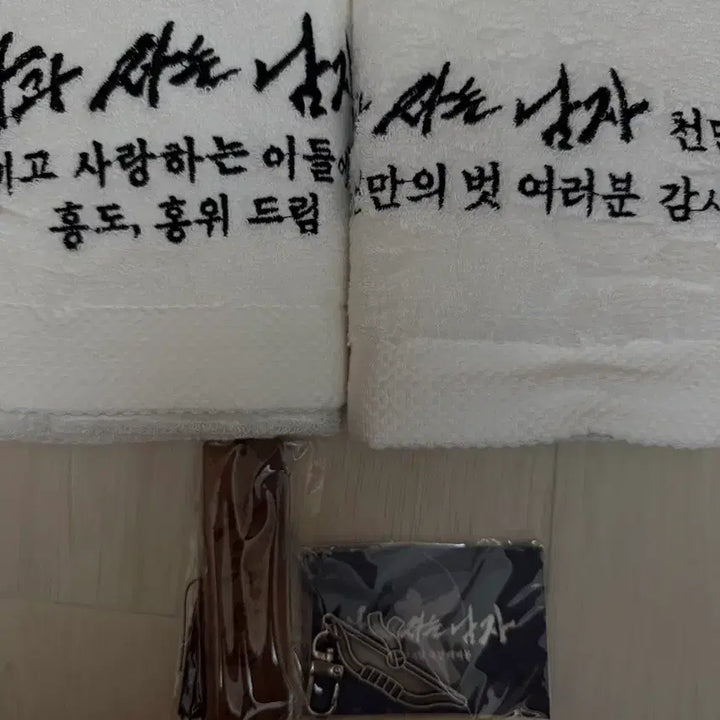 과 사는 남자
고 사랑하는 이들
홍도, 홍위 드림
사는 남자
만의 벗 여러분 감사
사는 남자